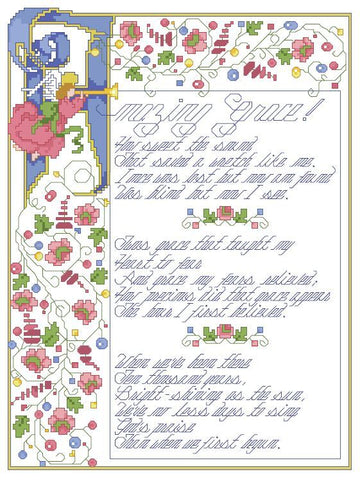 Amazing Grace!
How sweet the sound
That saved a wretch like me.
I once was lost but now am found
Was blind but now I see.
Twas grace that taught my
Heart to fear
And grace my fears relieved;
How precious did that grace appear
The hour I first believed.
When we've been there
Ten thousand years,
Bright-shining as the sun,
We've no less days to sing
God's praise
Than when we first begun.